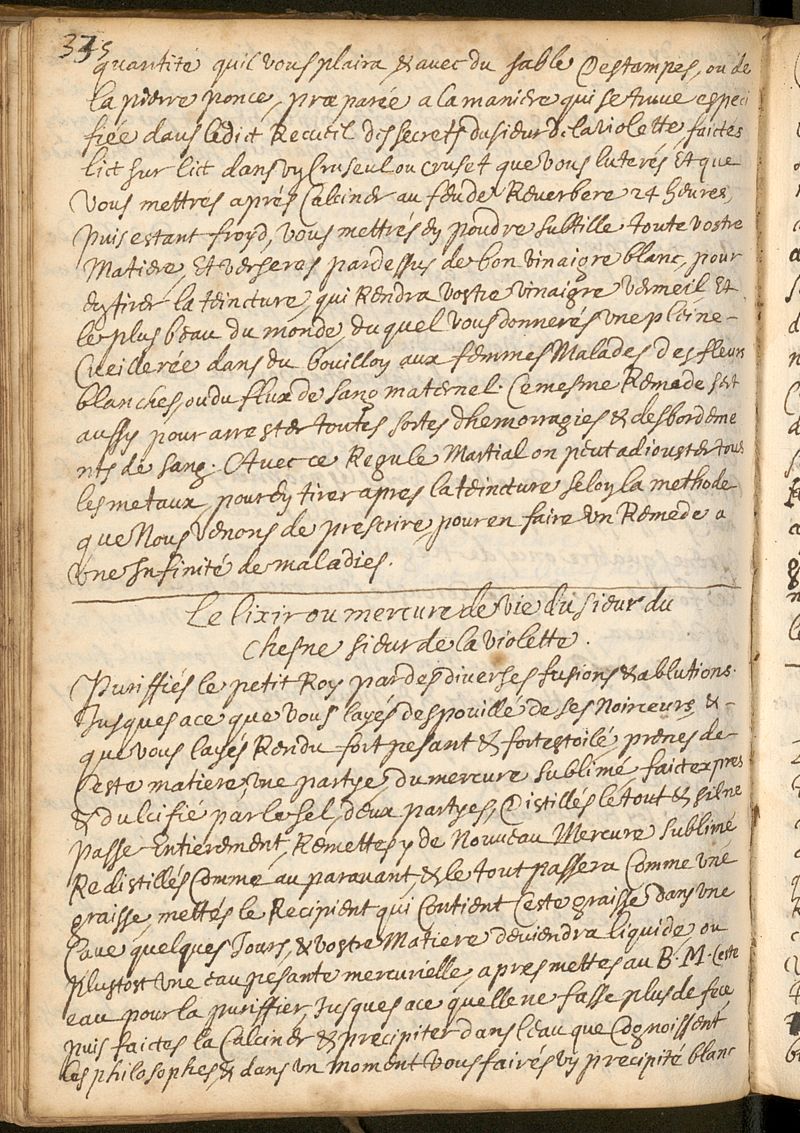 335
quantité quil vous plaira & avec du sable destampes, ou de
la pierre ponce, præparée a la maniere qui se truue especi
fiée dans ledict Recueil des secrets du sieur de la violette, faictes
lict sur lict dans vn Cruseul ou cruset que vous luterés Et que
vous mettres aprés Calciner au feu de Reuerbere 24 heures,
puis estant froyd, vous mettrés en poudre subtille toute vostre
Matiere, Et verseres pardessus de bon vinaigre blanc, pour
en tirer la teincture, qui Rendra vostre vinaigre vermeil Et
le plus beau du monde, duquel vous donnerés vne pleine
Cueillerée dans du bouillon aux femmes Malades des fleurs
blanches, ou du flux de sang maternel. Ce mesme Remede sert
aussy pour arrester toutes sortes dhemorragies & desbordeme
nts de sang. Auec ce Regule Martial on peut adiouster tous
les metaux, pour en tirer apres la teincture selon la methode
que Nous venons de prescrire, pour en faire vn Remede a
vne Infinité de maladies.
Lelixir ou mercure de vie du sieur du
Chesne sieur de la violette.
Puriffiés le petit Roy par des diverses fusions & ablutions.
Jusques a ce que vous layés despouillé de ses Noirceurs, &
que vous layés Rendu fort pesant & fort estoilé, prenes de
Ceste matiere, vne partye, du mercure sublimé faict expres
& dulcifié par le sel, deux partyes, Distillés le tout & sil ne
passe Entierement, Remettes y de Nouveau Mercure sublimé
Redistillés Comme au parauant, & le tout passera Comme vne
graisse, mettés le Recipient qui Contient Ceste graisse dans vne
Caue quelques Jours, & vostre Matiere deviendra liquide ou
plustost vne eau pesante mercurielle, apres mettes au B. M. Ceste
eau pour la puriffier, Jusques a ce quelle ne fasse plus de fece
puis faictes la Calciner & precipiter dans leau que Cognoissent
les philosophes, & dans vn moment vous fairés vn precipité blanc